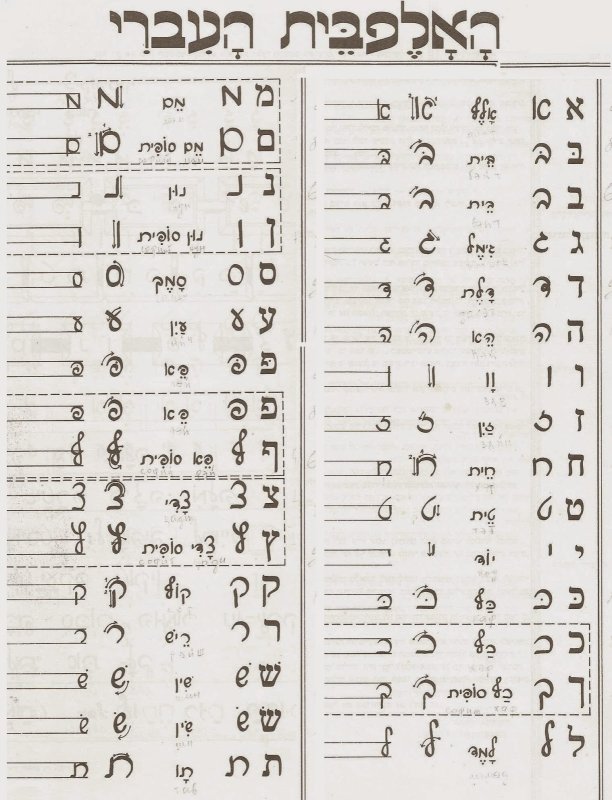 הָאָלֶפבֵּית הָעִבְרִי
א א אָלֶף א א
בּ בּ בֵּית בּ בּ
ב ב בֵית ב ב
ג ג גִימֶל ג ג
ד ד דָלֶת ד ד
ה ה הֵא ה ה
ו ו וָו ו ו
ז ז זַיִן ז ז
ח ח חֵית ח ח
ט ט טֵית ט ט
י י יוֹד י י
כּ כּ כַּף כּ כּ
כ כ כַף כ כ
ך ך כַף סוֹפִית ך ך
ל ל לָמֶד ל ל
מ מ מֵם מ מ
ם ם מֵם סוֹפִית ם ם
נ נ נוּן נ נ
ן ן נוּן סוֹפִית ן ן
ס ס סָמֶך ס ס
ע ע עַיִן ע ע
פּ פּ פֵּא פּ פּ
פ פ פֵא פ פ
ף ף פֵא סוֹפִית ף ף
צ צ צָדִי צ צ
ץ ץ צָדִי סוֹפִית ץ ץ
ק ק קוֹף ק ק
ר ר רֵיש ר ר
שׁ שׁ שִׁין שׁ שׁ
שׂ שׂ שִׂין שׂ שׂ
ת ת תָו ת ת